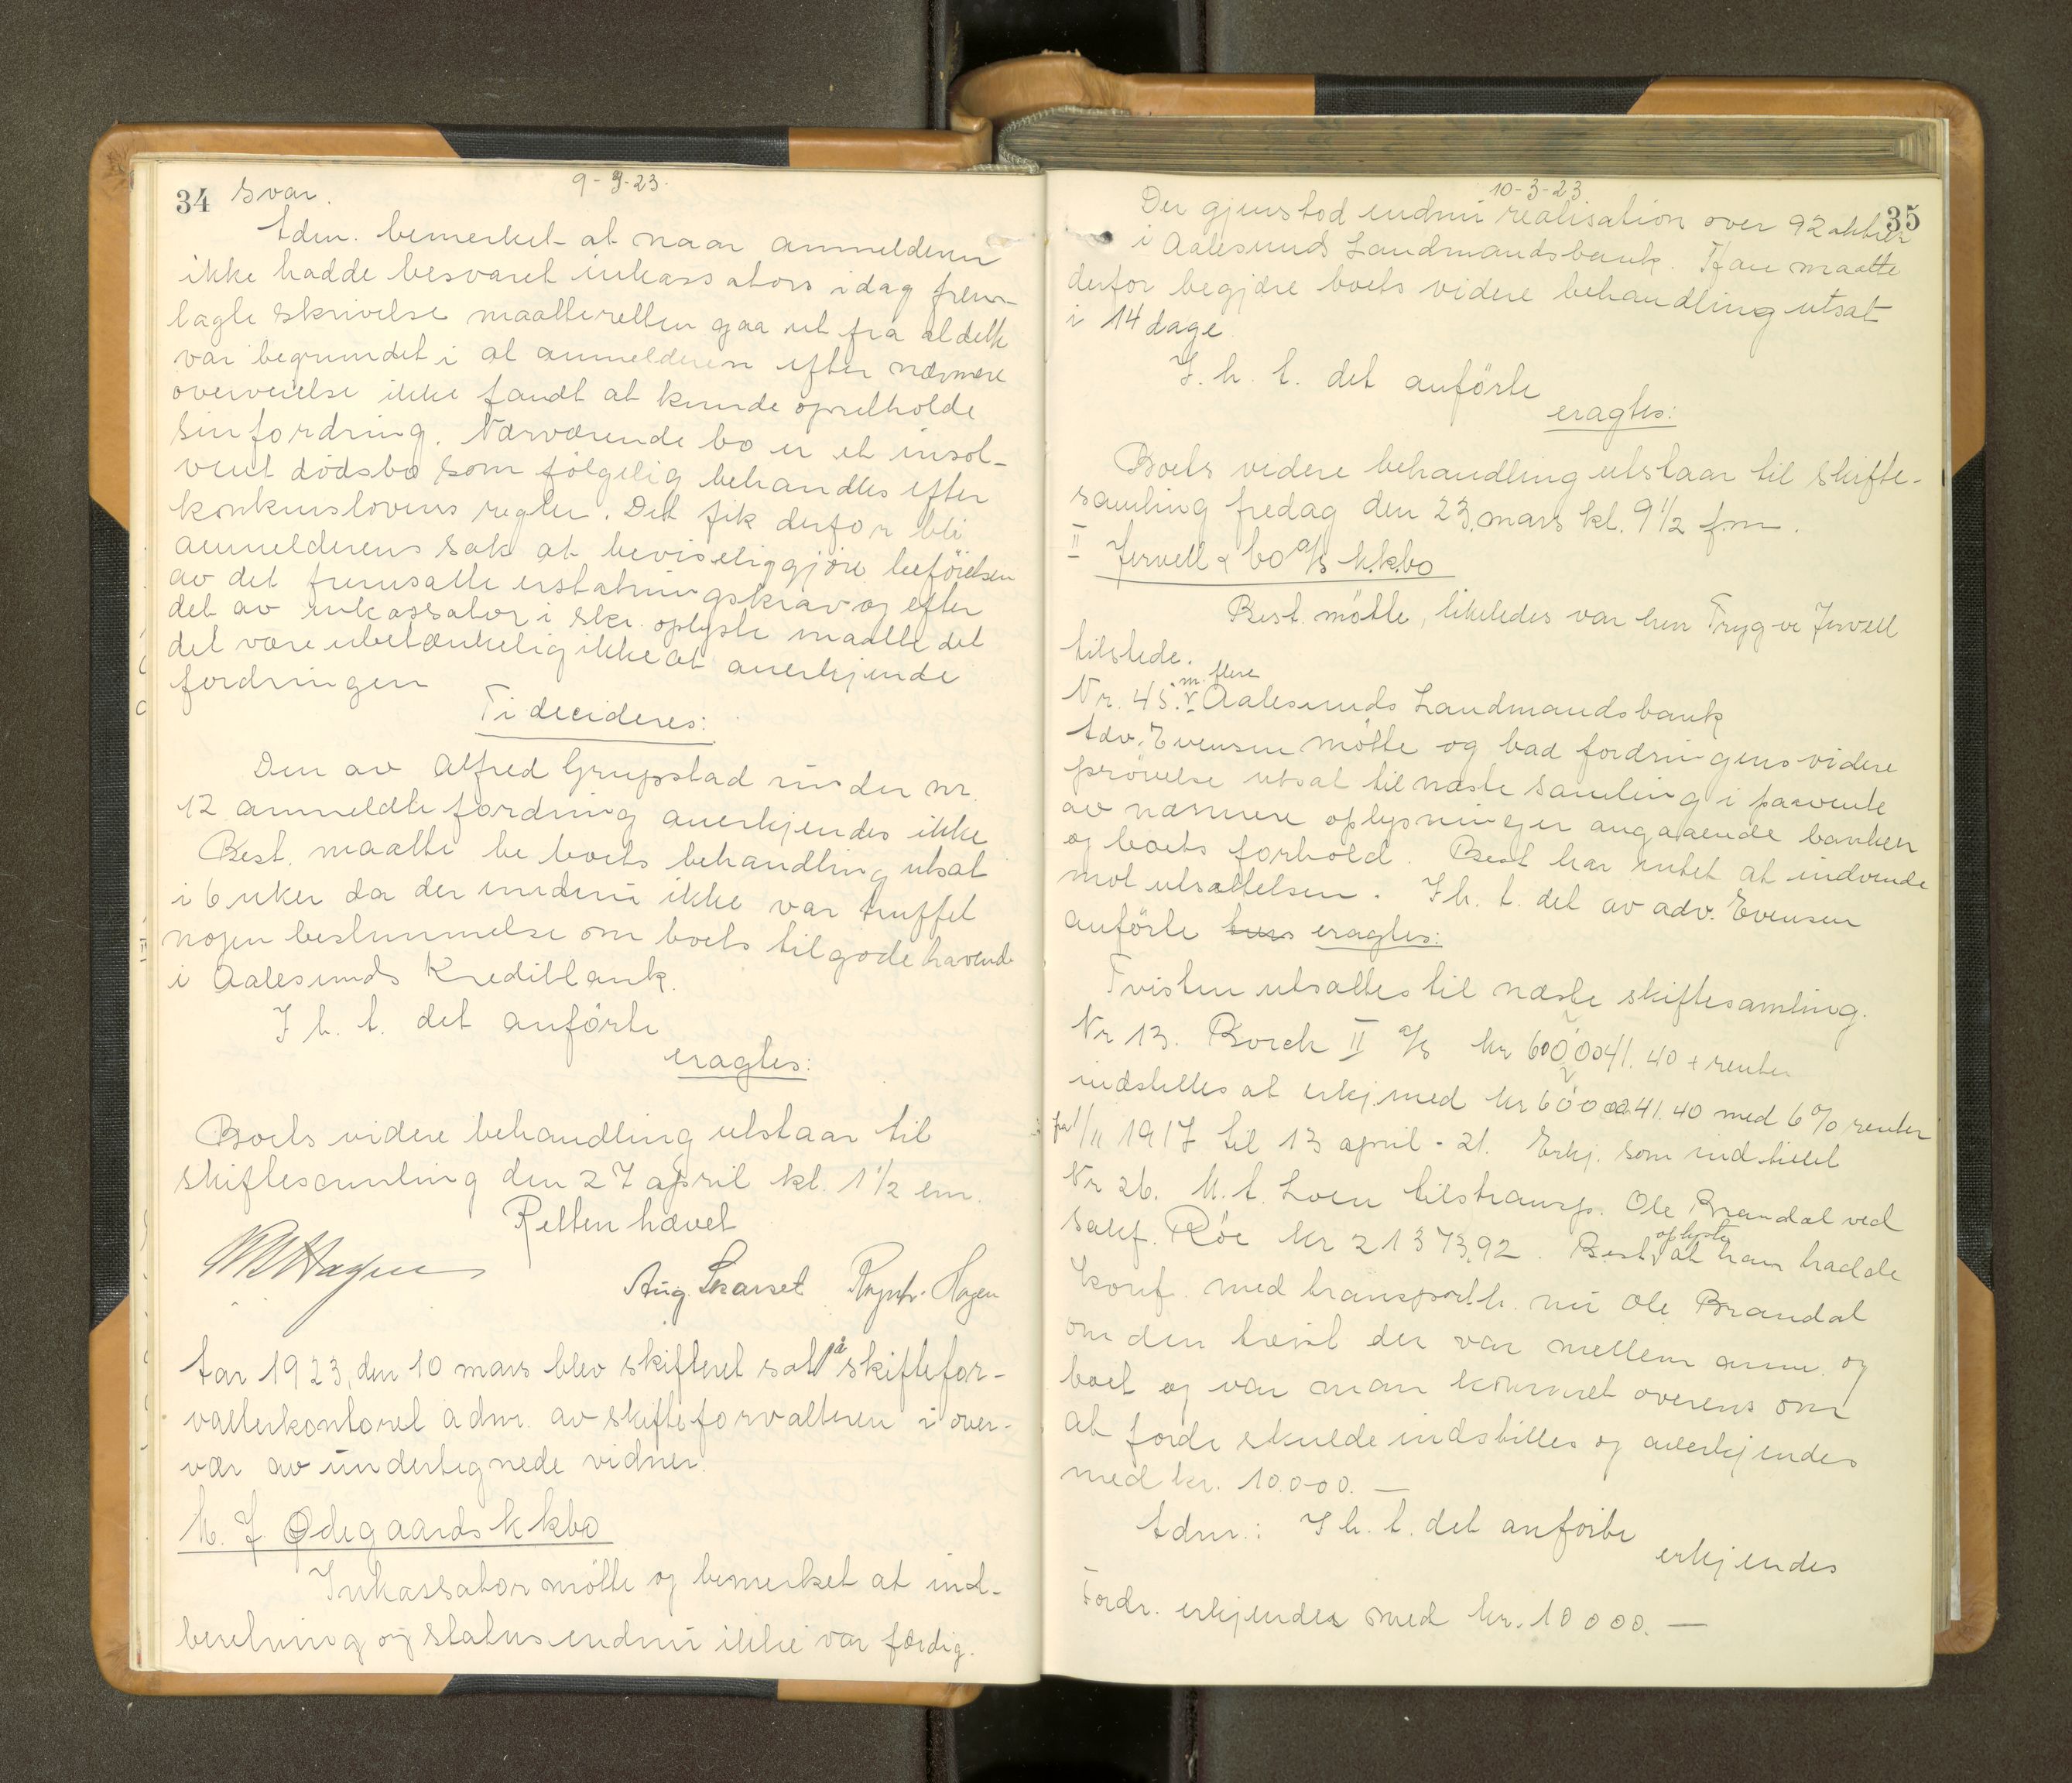 34 svar.
9-3-23.
Adm. bemerket at naar anmelderen
ikke hadde besvaret inkassators idag frem-
lagte skrivelse maatte retten gaa ut fra at dette
var begrundet i at anmelderen efter nærmere
overveielse ikke fandt at kunde opretholde
sin fordring. Nærværende bo er et insol-
vent dödsbo som fölgelig behandles efter
konkurslovens regler. Det fik derfor bli
anmelderens sak at beviseliggjöre beföielsen
av det fremsatte erstatningskrav og efter
det av inkassator i skr. oplyste maatte det
det være ubetænkelig ikke at anerkjende
fordringen
Ti decideres:
Den av Alfred Grupstad under nr.
12 anmeldte fordring anerkjendes ikke
Best. maatte be boets behandling utsat
i 6 uker da der endnu ikke var truffet
nogen bestemmelse om boets tilgodehavende
i Aalesunds Kreditbank.
I h. t. det anförte
eragtes:
Boets videre behandling utstaar til
skiftesamling den 27 april kl. 1 1/2 em.
Retten hævet
Aug. Hagen
Aar 1923, den 10 mars blev skifteret sat på skiftefor-
valterkontoret adm. av skifteforvalteren i over-
vær av undertegnede vidner.
M. J. Ødegaards kkbo
Inkassator mötte og bemerket at ind-
beretning og status endnu ikke var færdig.
10-3-23
35
Der gjenstod endnu realisation over 92 aktier
i Aalesunds Landmandsbank. Han maatte
derfor begjære boets videre behandling utsat
i 14 dage.
I. h. t. det anförte
eragtes:
Boets videre behandling utstaar til skifte-
samling fredag den 23. mars kl. 9 1/2 fm.
II Jervell & Co a/s k.k.bo
Best. mötte, likeledes var herr Trygve Jervell
tilstede.
m. flere
Nr. 45. Aalesunds Landmandsbank
Adv. Evensen mötte og bad fordringens videre
prövelse utsat til næste samling i paavente
av nærmere oplysninger angaaende banken
og boets forhold. Best har intet at indvende
mot utsættelsen. I h. t. det av adv. Evensen
anförte eragtes:
Tvisten utsættes til næste skiftesamling.
Nr 13. Borch II a/s kr 600041.40 + renter
indstilles at erkj. med kr 600041.40 med 6% renter
fra 1/11 1917 til 13 april - 21. Erkj. som indstillet
Nr 26. M. t. Loen tiltransp. Ole Brandal ved
sakf. Röe kr 21373,92. Best. oplyste at han hadde
konf. med transporth. nu Ole Brandal
om den tvist der var mellem anm. og
boet og var man kommet overens om
at fordr skulde indstilles og anerkjendes
med kr. 10.000.—
Adm.: I h. t. det anförte
erkjendes
Fordr. erkjendes med kr. 10000.—